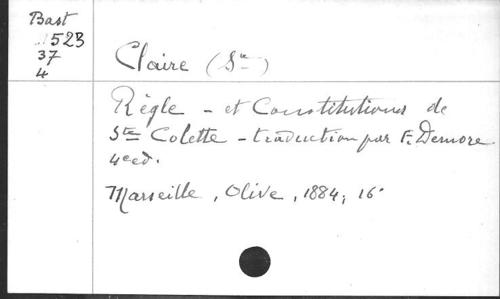 Bast
523
37
4
Claire (Ste)
Règle - et Constitutions de
Ste Colette - traduction par F. Demore
4e ed.
Marseille, Olive, 1884; 16°